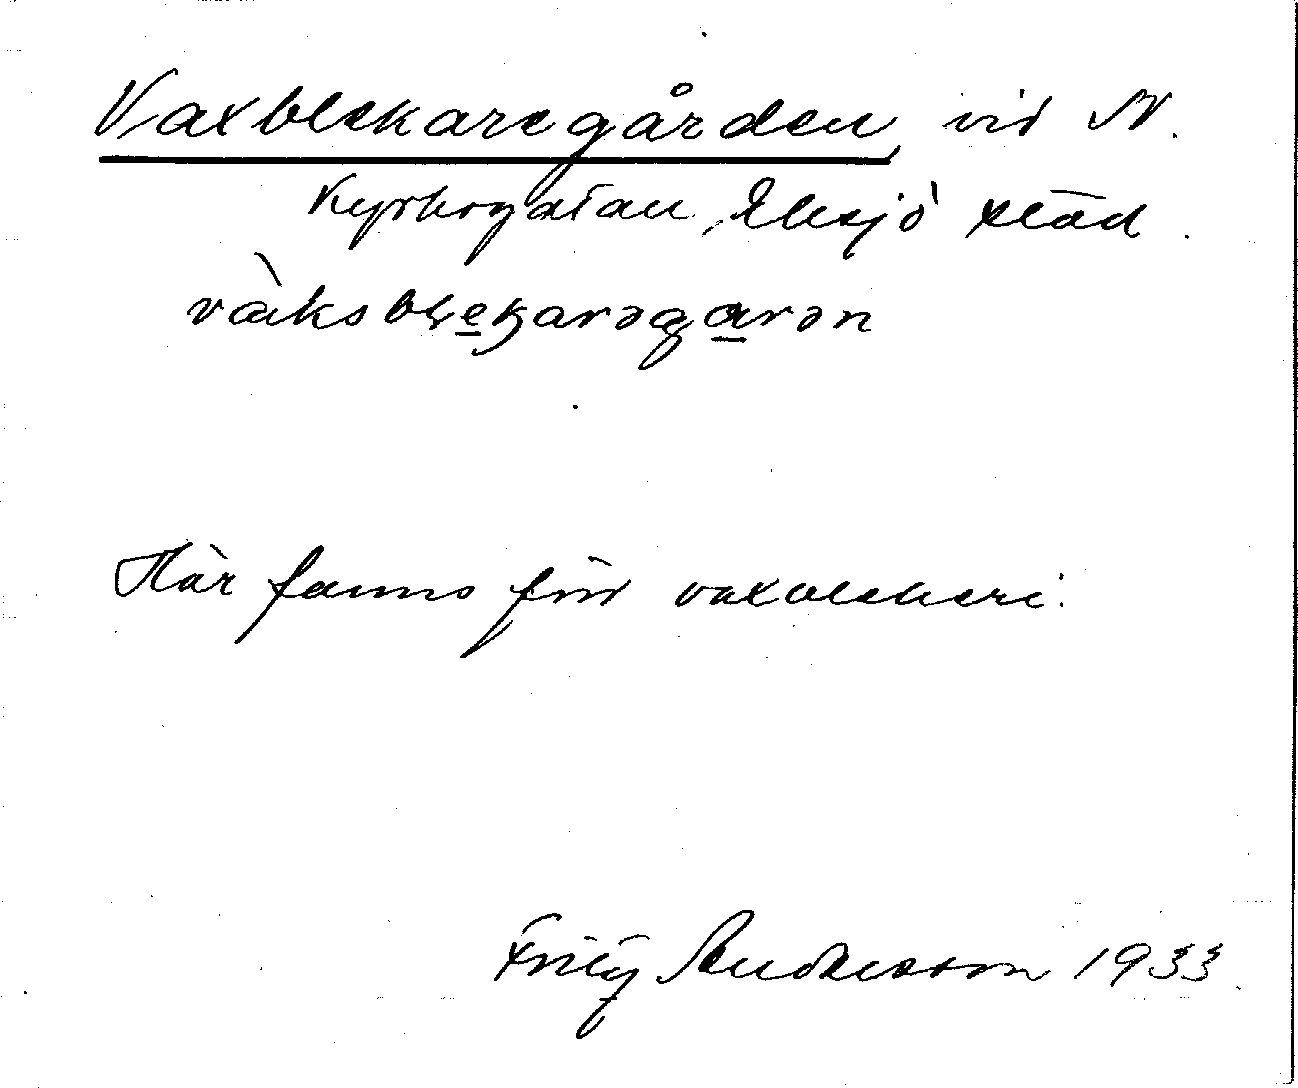 Vaxblekaregården, vid N.
Kyrkogatan, Eksjö stad.
vàksblekarəgarən
Här fanns förr vaxblekeri.
Fritz Andersson 1933